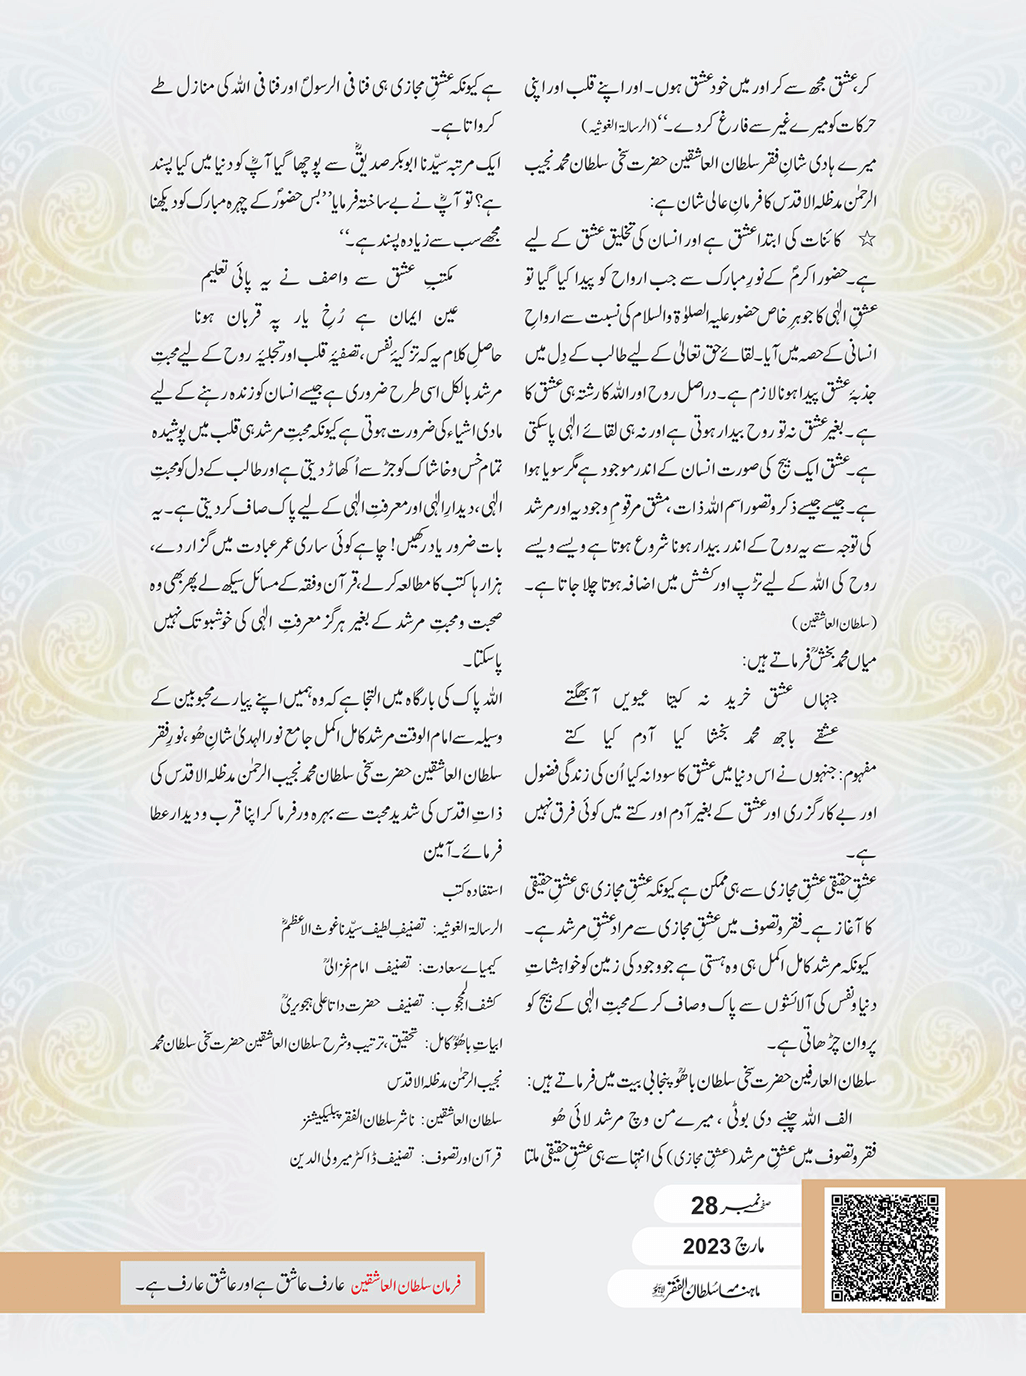 کر، عشق مجھ سے کر اور میں خود عشق ہوں۔ اور اپنے قلب اور اپنی
حرکات کو میرے غیر سے فارغ کردے۔‘‘ (الرسالۃ الغوثیہ)
میرے ہادی شانِ فقر سلطان العاشقین حضرت سخی سلطان محمد نجیب
الرحمٰن مدظلہ الاقدس کا فرمانِ عالی شان ہے:
☆ کائنات کی ابتدا عشق ہے اور انسان کی تخلیق عشق کے لیے
ہے۔ حضور اکرمؐ کے نورِ مبارک سے جب ارواح کو پیدا کیا گیا تو
عشقِ الٰہی کا جوہرِ خاص حضور علیہ الصلوٰۃ والسلام کی نسبت سے ارواحِ
انسانی کے حصہ میں آیا۔ لقائے حق تعالیٰ کے لیے طالب کے دِل میں
جذبۂ عشق پیدا ہونا لازم ہے۔ دراصل روح اور اللہ کا رشتہ ہی عشق کا
ہے۔ بغیر عشق نہ تو روح بیدار ہوتی ہے اور نہ ہی لقائے الٰہی پاسکتی
ہے۔ عشق ایک بیج کی صورت انسان کے اندر موجود ہے مگر سویا ہوا
ہے۔ جیسے جیسے ذکر و تصور اسم اللہ ذات، مشق مرقومِ وجودیہ اور مرشد
کی توجہ سے یہ روح کے اندر بیدار ہونا شروع ہوتا ہے ویسے ویسے
روح کی اللہ کے لیے تڑپ اور کشش میں اضافہ ہوتا چلا جاتا ہے۔
(سلطان العاشقین)
میاں محمد بخشؒ فرماتے ہیں:
جنہاں عشق خرید نہ کیتا عیویں آ بھگتے
عشقے باجھ محمد بخشا کیا آدم کیا کتے
مفہوم: جنہوں نے اس دنیا میں عشق کا سودا نہ کیا اُن کی زندگی فضول
اور بے کار گزری اور عشق کے بغیر آدم اور کتے میں کوئی فرق نہیں
ہے۔
عشقِ حقیقی عشقِ مجازی سے ہی ممکن ہے کیونکہ عشقِ مجازی ہی عشقِ حقیقی
کا آغاز ہے۔ فقر و تصوف میں عشقِ مجازی سے مراد عشقِ مرشد ہے۔
کیونکہ مرشد کامل اکمل ہی وہ ہستی ہے جو وجود کی زمین کو خواہشاتِ
دنیا و نفس کی آلائشوں سے پاک و صاف کر کے محبتِ الٰہی کے بیج کو
پروان چڑھاتی ہے۔
سلطان العارفین حضرت سخی سلطان باھوؒ پنجابی بیت میں فرماتے ہیں:
الف اللہ چنبے دی بوٹی، میرے من وچ مرشد لائی ھُو
فقر و تصوف میں عشقِ مرشد (عشقِ مجازی) کی انتہا سے ہی عشقِ حقیقی ملتا
ہے کیونکہ عشقِ مجازی ہی فنا فی الرسولؐ اور فنا فی اللہ کی منازل طے
کرواتا ہے۔
ایک مرتبہ سیّدنا ابوبکر صدیقؓ سے پوچھا گیا آپؓ کو دنیا میں کیا پسند
ہے؟ تو آپؓ نے بے ساختہ فرمایا ’’بس حضورؐ کے چہرہ مبارک کو دیکھنا
مجھے سب سے زیادہ پسند ہے۔‘‘
مکتبِ عشق سے واصف نے یہ پائی تعلیم
عین ایمان ہے رُخِ یار پہ قربان ہونا
حاصلِ کلام یہ کہ تزکیۂ نفس، تصفیۂ قلب اور تجلیۂ روح کے لیے محبتِ
مرشد بالکل اسی طرح ضروری ہے جیسے انسان کو زندہ رہنے کے لیے
مادی اشیاء کی ضرورت ہوتی ہے کیونکہ محبتِ مرشد ہی قلب میں پوشیدہ
تمام خس و خاشاک کو جڑ سے اُکھاڑ دیتی ہے اور طالب کے دل کو محبتِ
الٰہی، دیدارِ الٰہی اور معرفتِ الٰہی کے لیے پاک صاف کر دیتی ہے۔ یہ
بات ضرور یاد رکھیں! چاہے کوئی ساری عمر عبادت میں گزار دے،
ہزارہا کتب کا مطالعہ کر لے، قرآن و فقہ کے مسائل سیکھ لے پھر بھی وہ
صحبت و محبتِ مرشد کے بغیر ہرگز معرفتِ الٰہی کی خوشبو تک نہیں
پا سکتا۔
اللہ پاک کی بارگاہ میں التجا ہے کہ وہ ہمیں اپنے پیارے محبوبین کے
وسیلہ سے امام الوقت مرشد کامل اکمل جامع نور الہدیٰ شانِ ھو، نورِ فقر
سلطان العاشقین حضرت سخی سلطان محمد نجیب الرحمٰن مدظلہ الاقدس کی
ذاتِ اقدس کی شدید محبت سے بہرہ ور فرما کر اپنا قرب و دیدار عطا
فرمائے۔ آمین
استفادہ کتب
الرسالۃ الغوثیہ: تصنیفِ لطیف سیّدنا غوث الاعظمؓ
کیمیائے سعادت: تصنیف امام غزالیؒ
کشف المحجوب: تصنیف حضرت داتا علی ہجویریؒ
ابیاتِ باھُوؒ کامل: تحقیق، ترتیب و شرح سلطان العاشقین حضرت سخی سلطان محمد
نجیب الرحمٰن مدظلہ الاقدس
سلطان العاشقین: ناشر سلطان الفقر پبلیکیشنز
قرآن اور تصوف: تصنیف ڈاکٹر میر ولی الدین
صفحہ نمبر 28
مارچ 2023
ماہنامہ سلطان الفقر لاہور
فرمان سلطان العاشقین عارف عاشق ہے اور عاشق عارف ہے۔